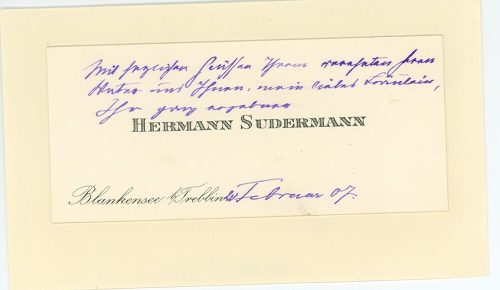 Mit herzlichen Grüßen Ihrem verehrten Herrn
Vater und Ihnen, mein liebes Fräulein,
Ihr ganz ergebener
HERMANN SUDERMANN
Blankensee b/Trebbin Februar 07.